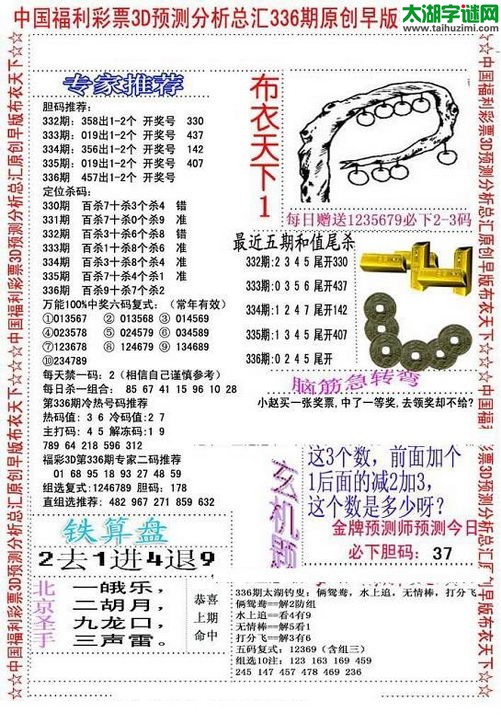 中国福利彩票3D预测分析总汇336期原创早版
太湖字谜网
www.taihuzimi.com
☆☆中国福利彩票3D预测分析总汇原创早版布衣天下☆☆
专家推荐
胆码推荐:
332期: 358出1-2个 开奖号 330
333期: 019出1-2个 开奖号 437
334期: 356出1-2个 开奖号 142
335期: 019出1-2个 开奖号 407
336期 457出1-2个 开奖号
定位杀码:
330期 百杀7十杀3个杀4 错
331期 百杀7十杀0个杀9 准
332期 百杀1十杀3个杀6 错
333期 百杀0十杀9个杀1 准
334期 百杀3十杀8个杀9 准
335期 百杀7十杀4个杀1 准
336期 百杀9十杀7个杀2
万能100%中奖六码复式: (常年有效)
①013567 ②013568 ③014569
④023578 ⑤024579 ⑥034689
⑦123678 ⑧124679 ⑨134689
⑩234789
每天禁一码: 2 (相信自己谨慎参考)
每日杀一组合: 85 67 41 15 96 10 28
第336期冷热号码推荐
热码值: 3 6 冷码值: 2 7
主打码: 4 5 解冻码: 1 9
789 64 218 596 312
福彩3D第336期专家二码推荐
01 68 95 18 93 27 48 59
组选复式: 1246789 胆码: 178
直组选推荐: 482 967 271 859 632
布衣天下1
每日赠送1235679必下2-3码
最近五期和值尾杀
332期: 2 3 4 5 尾开330
333期: 0 3 5 6 尾开437
334期: 1 2 4 7 尾开142
335期: 1 3 4 5 尾开407
336期: 0 2 4 5 尾开
脑筋急转弯
小赵买一张奖票,中了一等奖,去领奖却不给?
玄机题
这3个数, 前面加个
1后面的减2加3,
这个数是多少呀?
金牌预测师预测今日
必下胆码: 37
铁算盘
2去1进4退9
北京圣手
一皒乐,
二胡月,
九龙口,
三声雷。
恭喜
上期
命中
336期太湖钓叟: 俩鸳鸯, 水上追, 无情棒, 打分飞
俩鸳鸯==解2防组
水上追==看4有9
无情棒==解5看1
打分飞==解3有6
五码复式: 12369 (含组三)
组选10注: 123 163 169 459
245 147 457 478 469 236